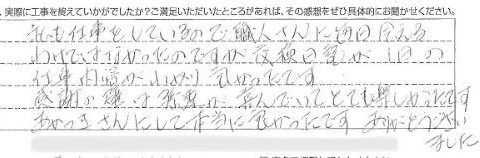 実際に工事を終えていかがでしたか?ご満足いただいたところがあれば、その感想をぜひ具体的にお聞かせください。
私も仕事をしているので職人さんに毎日会える
わけではなかったのですが交換日記が1日の
仕事内容がわかり良かったです
感謝の は が喜んでいてとても嬉しかったです
あかつきさんにして本当に良かったです ありがとうござい
ました